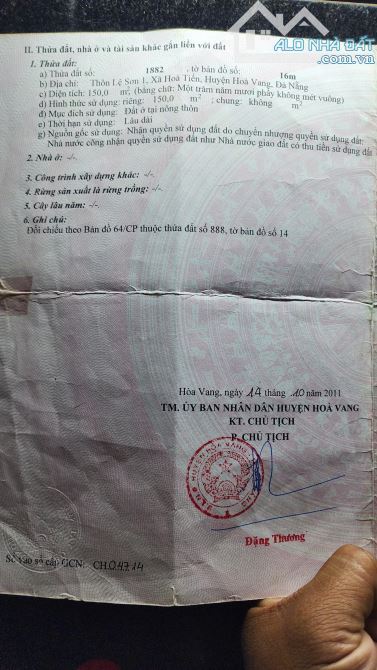 ALO NHÀ ĐẤT
.com.vn
II. Thửa đất, nhà ở và tài sản khác gắn liền với đất
1. Thửa đất:
a) Thửa đất số: 1882 , tờ bản đồ số: 16m
b) Địa chỉ: Thôn Lệ Sơn 1, Xã Hoà Tiến, Huyện Hoà Vang, Đà Nẵng
c) Diện tích: 150,0 m², (bằng chữ: Một trăm năm mươi phẩy không mét vuông)
d) Hình thức sử dụng: riêng: 150,0 m²; chung: không m²
đ) Mục đích sử dụng: Đất ở tại nông thôn
e) Thời hạn sử dụng: Lâu dài
g) Nguồn gốc sử dụng: Nhận quyền sử dụng đất do chuyển nhượng quyền sử dụng đất:
Nhà nước công nhận quyền sử dụng đất như Nhà nước giao đất có thu tiền sử dụng đất
2. Nhà ở: -/-.
3. Công trình xây dựng khác: -/-.
4. Rừng sản xuất là rừng trồng: -/-.
5. Cây lâu năm: -/-.
6. Ghi chú:
Đối chiếu theo Bản đồ 64/CP thuộc thửa đất số 888, tờ bản đồ số 14
Hòa Vang, ngày 14 tháng 10 năm 2011
TM. ỦY BAN NHÂN DÂN HUYỆN HOÀ VANG
KT. CHỦ TỊCH
P. CHỦ TỊCH
HUYỆN HOÀ VANG
Đặng Thương
Số vào sổ cấp GCN: CH04714